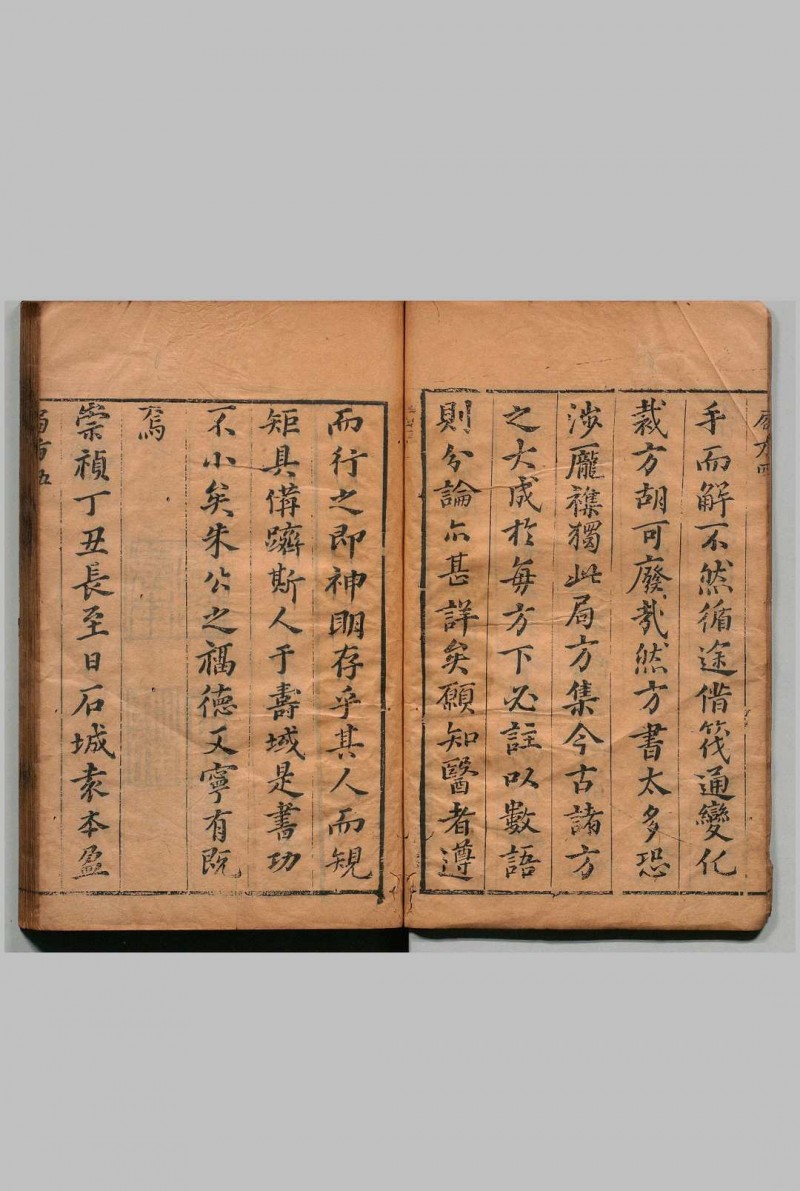 局方四
手而解不然循途借筏通變化
裁方胡可廢哉然方書太多恐
涉龎襍獨此局方集今古諸方
之大成於每方下必註以數語
則分論亦甚詳矣願知醫者遵
而行之即神明存乎其人而規
矩具備躋斯人于壽域是書功
不小矣朱公之福德又寧有既
焉
崇禎丁丑長至日石城袁本盈
局方五